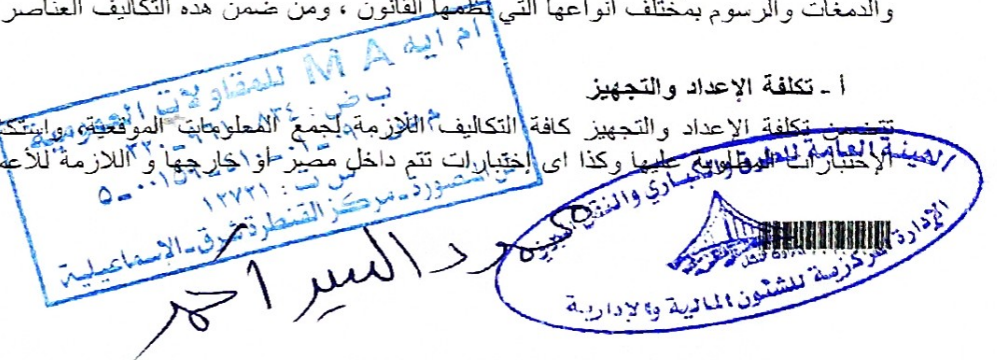 والدمغات والرسوم بمختلف أنواعها التي نظمها القانون ، ومن ضمن هذه التكاليف العناصر
أ - تكلفة الإعداد والتجهيز
تتضمن تكلفة الإعداد والتجهيز كافة التكاليف اللازمة لجمع المعلومات الموقعية،
الإختبارات المطلوبة عليها وكذا اى إختبارات تتم داخل مصر او خارجها و اللازمة
ام ايه M A للمقاولات العمومية
ب ض :
س ت : ١٢٧٢١
مركز القنطرة شرق - الاسماعيلية
الهيئة العامة للطرق والكباري والنقل البري
الإدارة المركزية للشئون المالية والإدارية
السيد أحمد